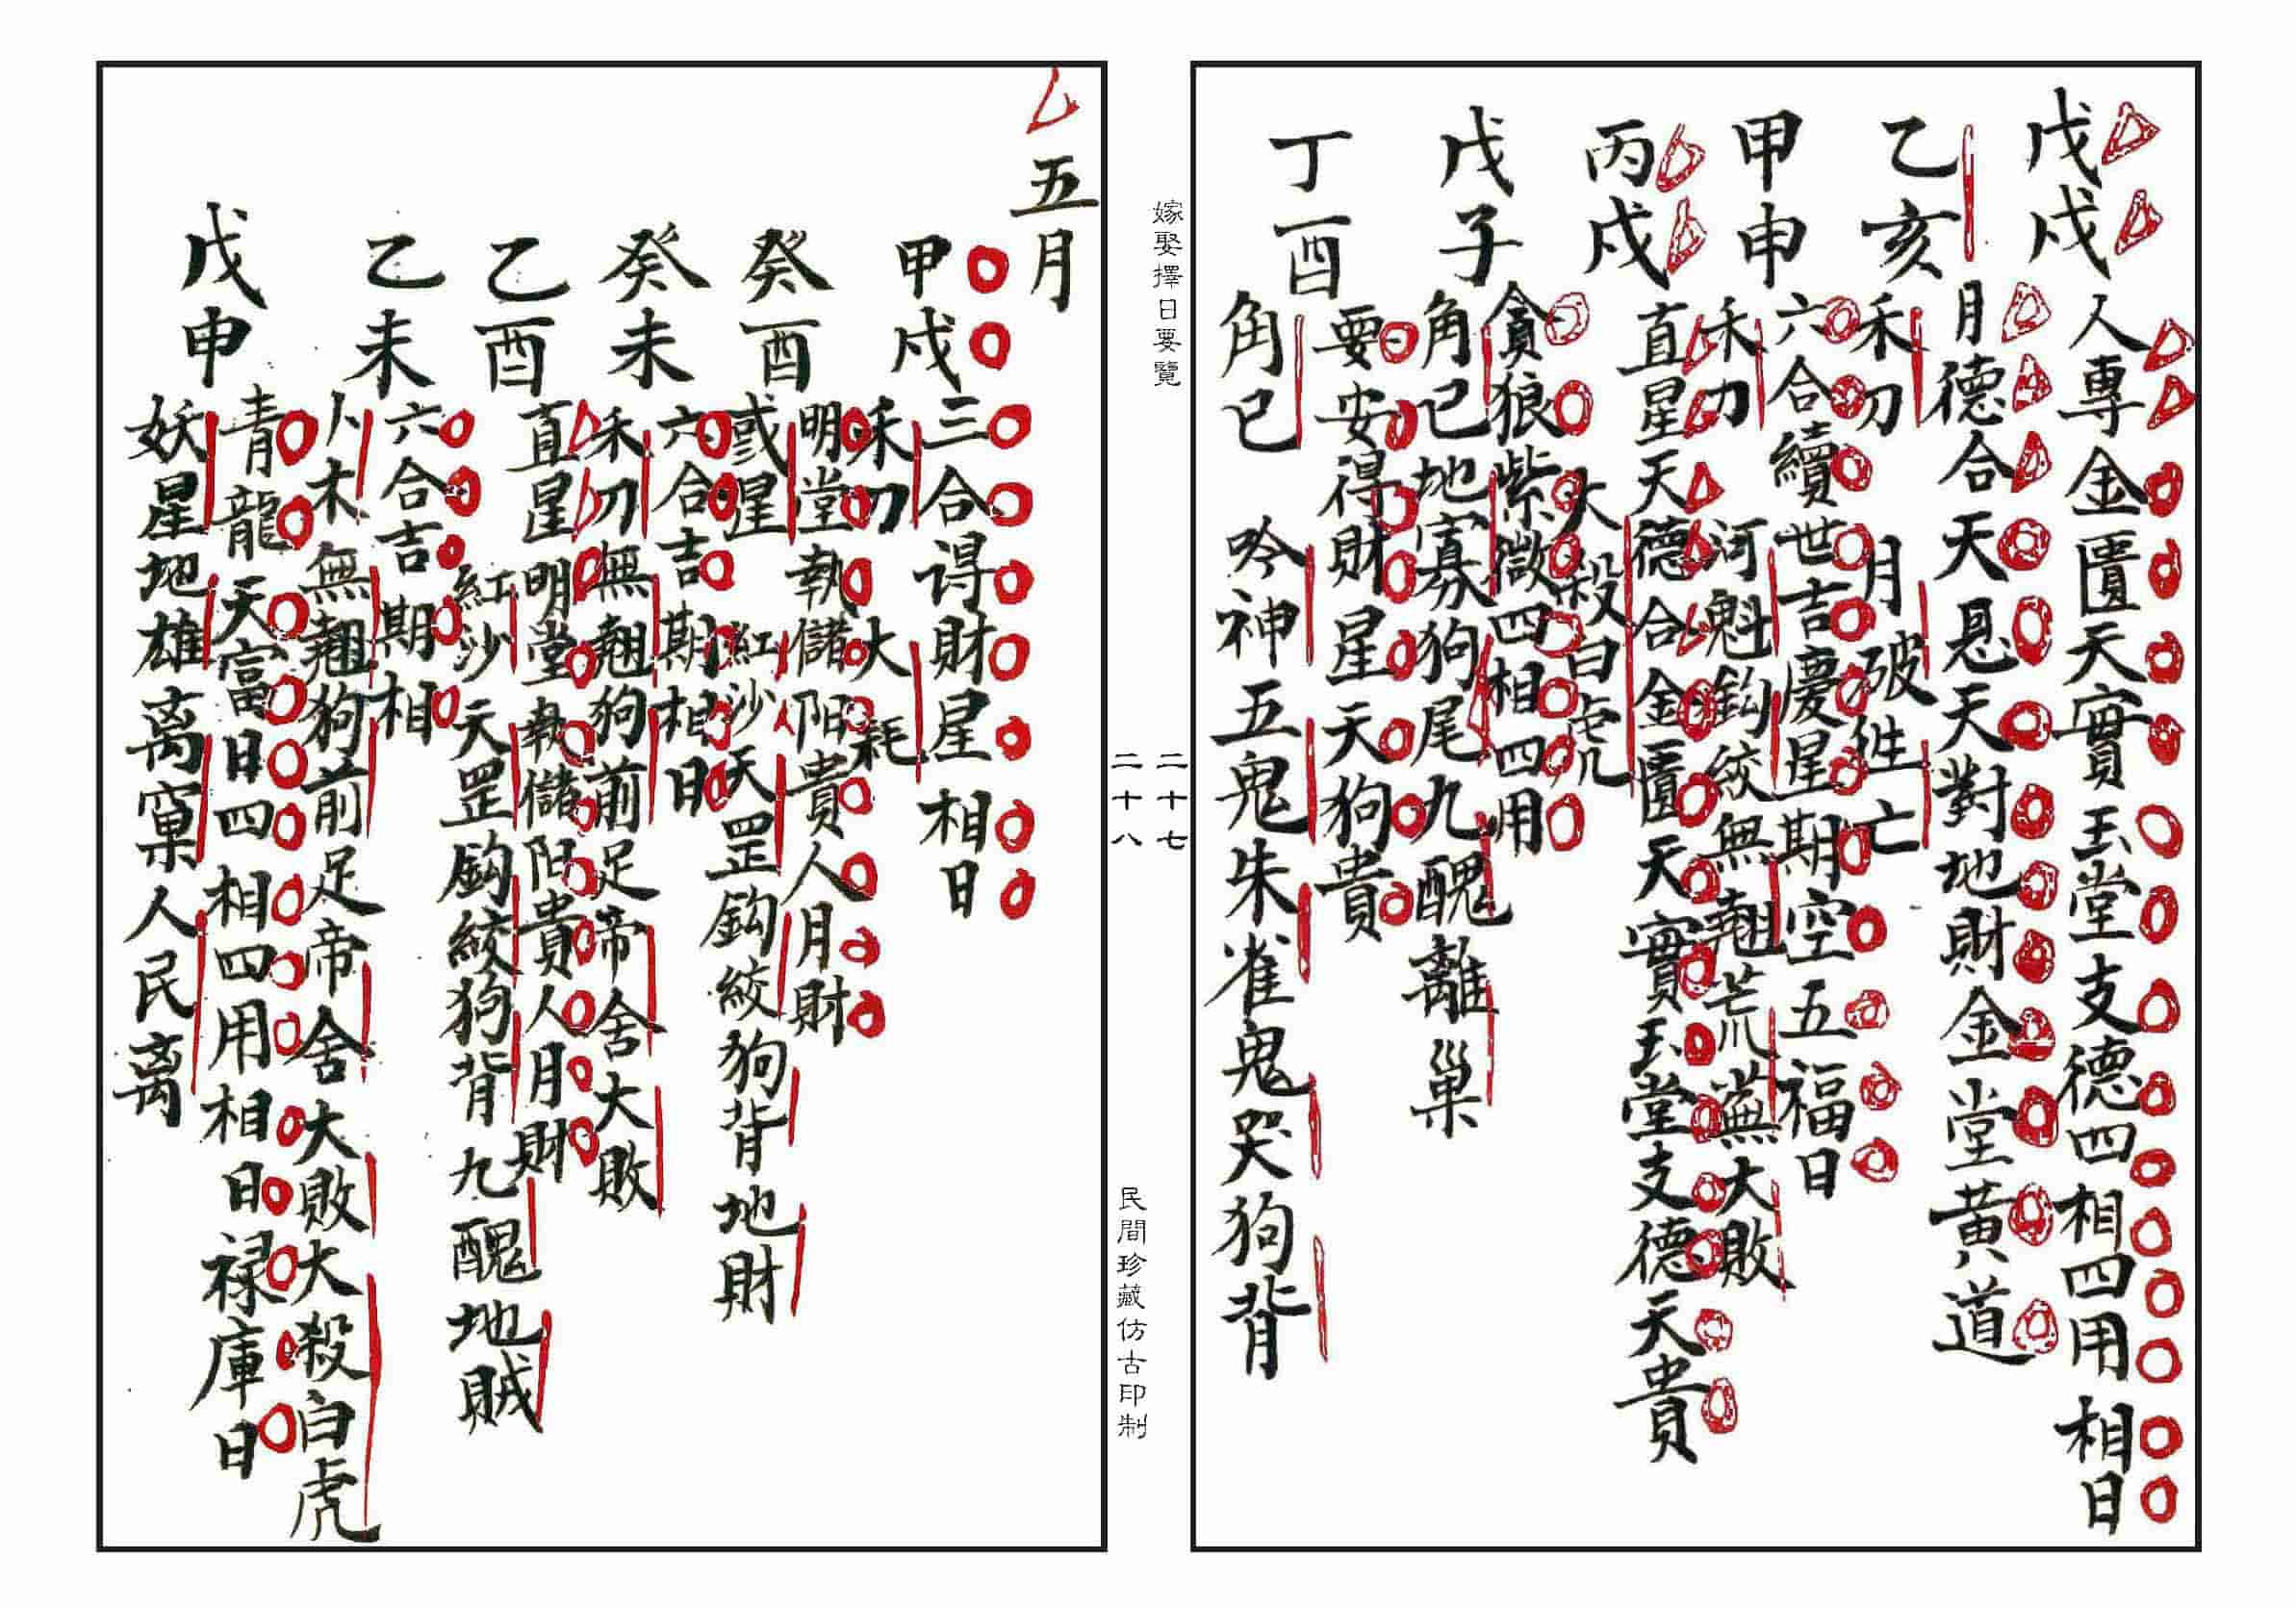 戊戌
人專金匱天寶玉堂支德四相四用相日
月德合天恩天對地財金堂黃道
乙亥
禾刀月破往亡
六合續世吉慶星期空五福日
甲申
禾刀河魁鈎絞無翹荒蕪大敗
直星天德合金匱天寶玉堂支德天貴
丙戌
大殺白虎
貪狼紫微四相四用
戊子
角巳地寡狗尾九醜離巢
要安得財星天狗貴
丁酉
角巳吟神五鬼朱雀鬼哭狗背
嫁娶擇日要覽
二十七
二十八
民間珍藏仿古印制
五月
甲戌
三合得財星相日
禾刀大耗
明堂執儲阳貴人月財
癸酉
或星紅沙天罡鈎絞狗背地財
六合吉期相日
癸未
禾刀無翹狗前足帝舍大敗
直星明堂執儲阳貴人月財
乙酉
紅沙天罡鈎絞狗背九醜地賊
六合吉期相
乙未
卜木無翹狗前足帝舍大敗大殺白虎
青龍天富日四相四用相日禄庫日
戊申
妖星地雄离窠人民离